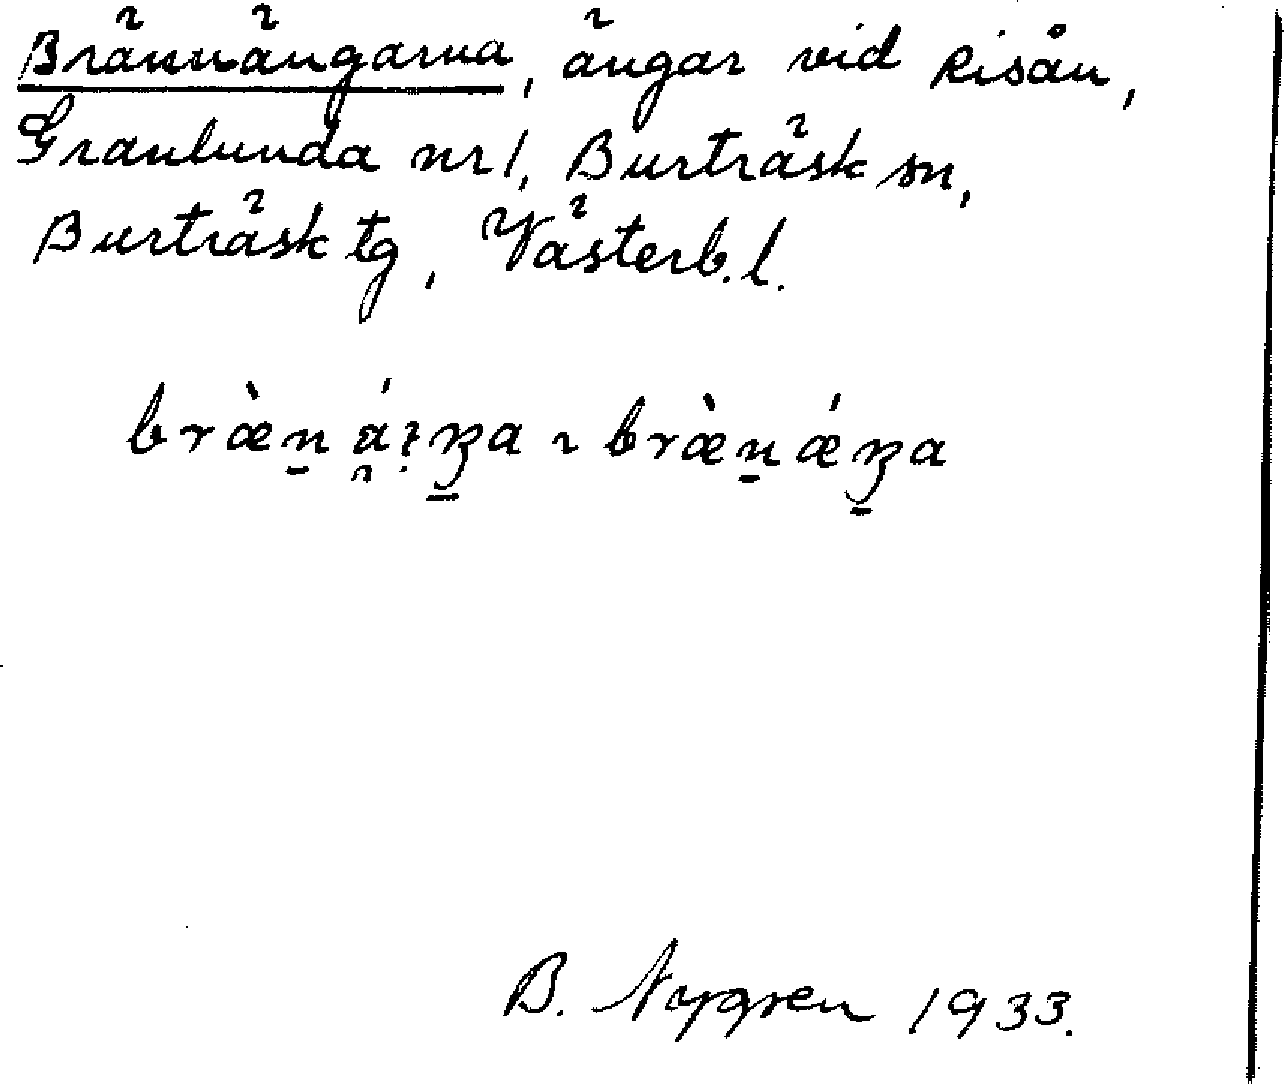 Brännängarna, ängar vid Risån,
Granlunda nr 1, Burträsk sn,
Burträsk tg, Västerb. l.
B. Nygren 1933.